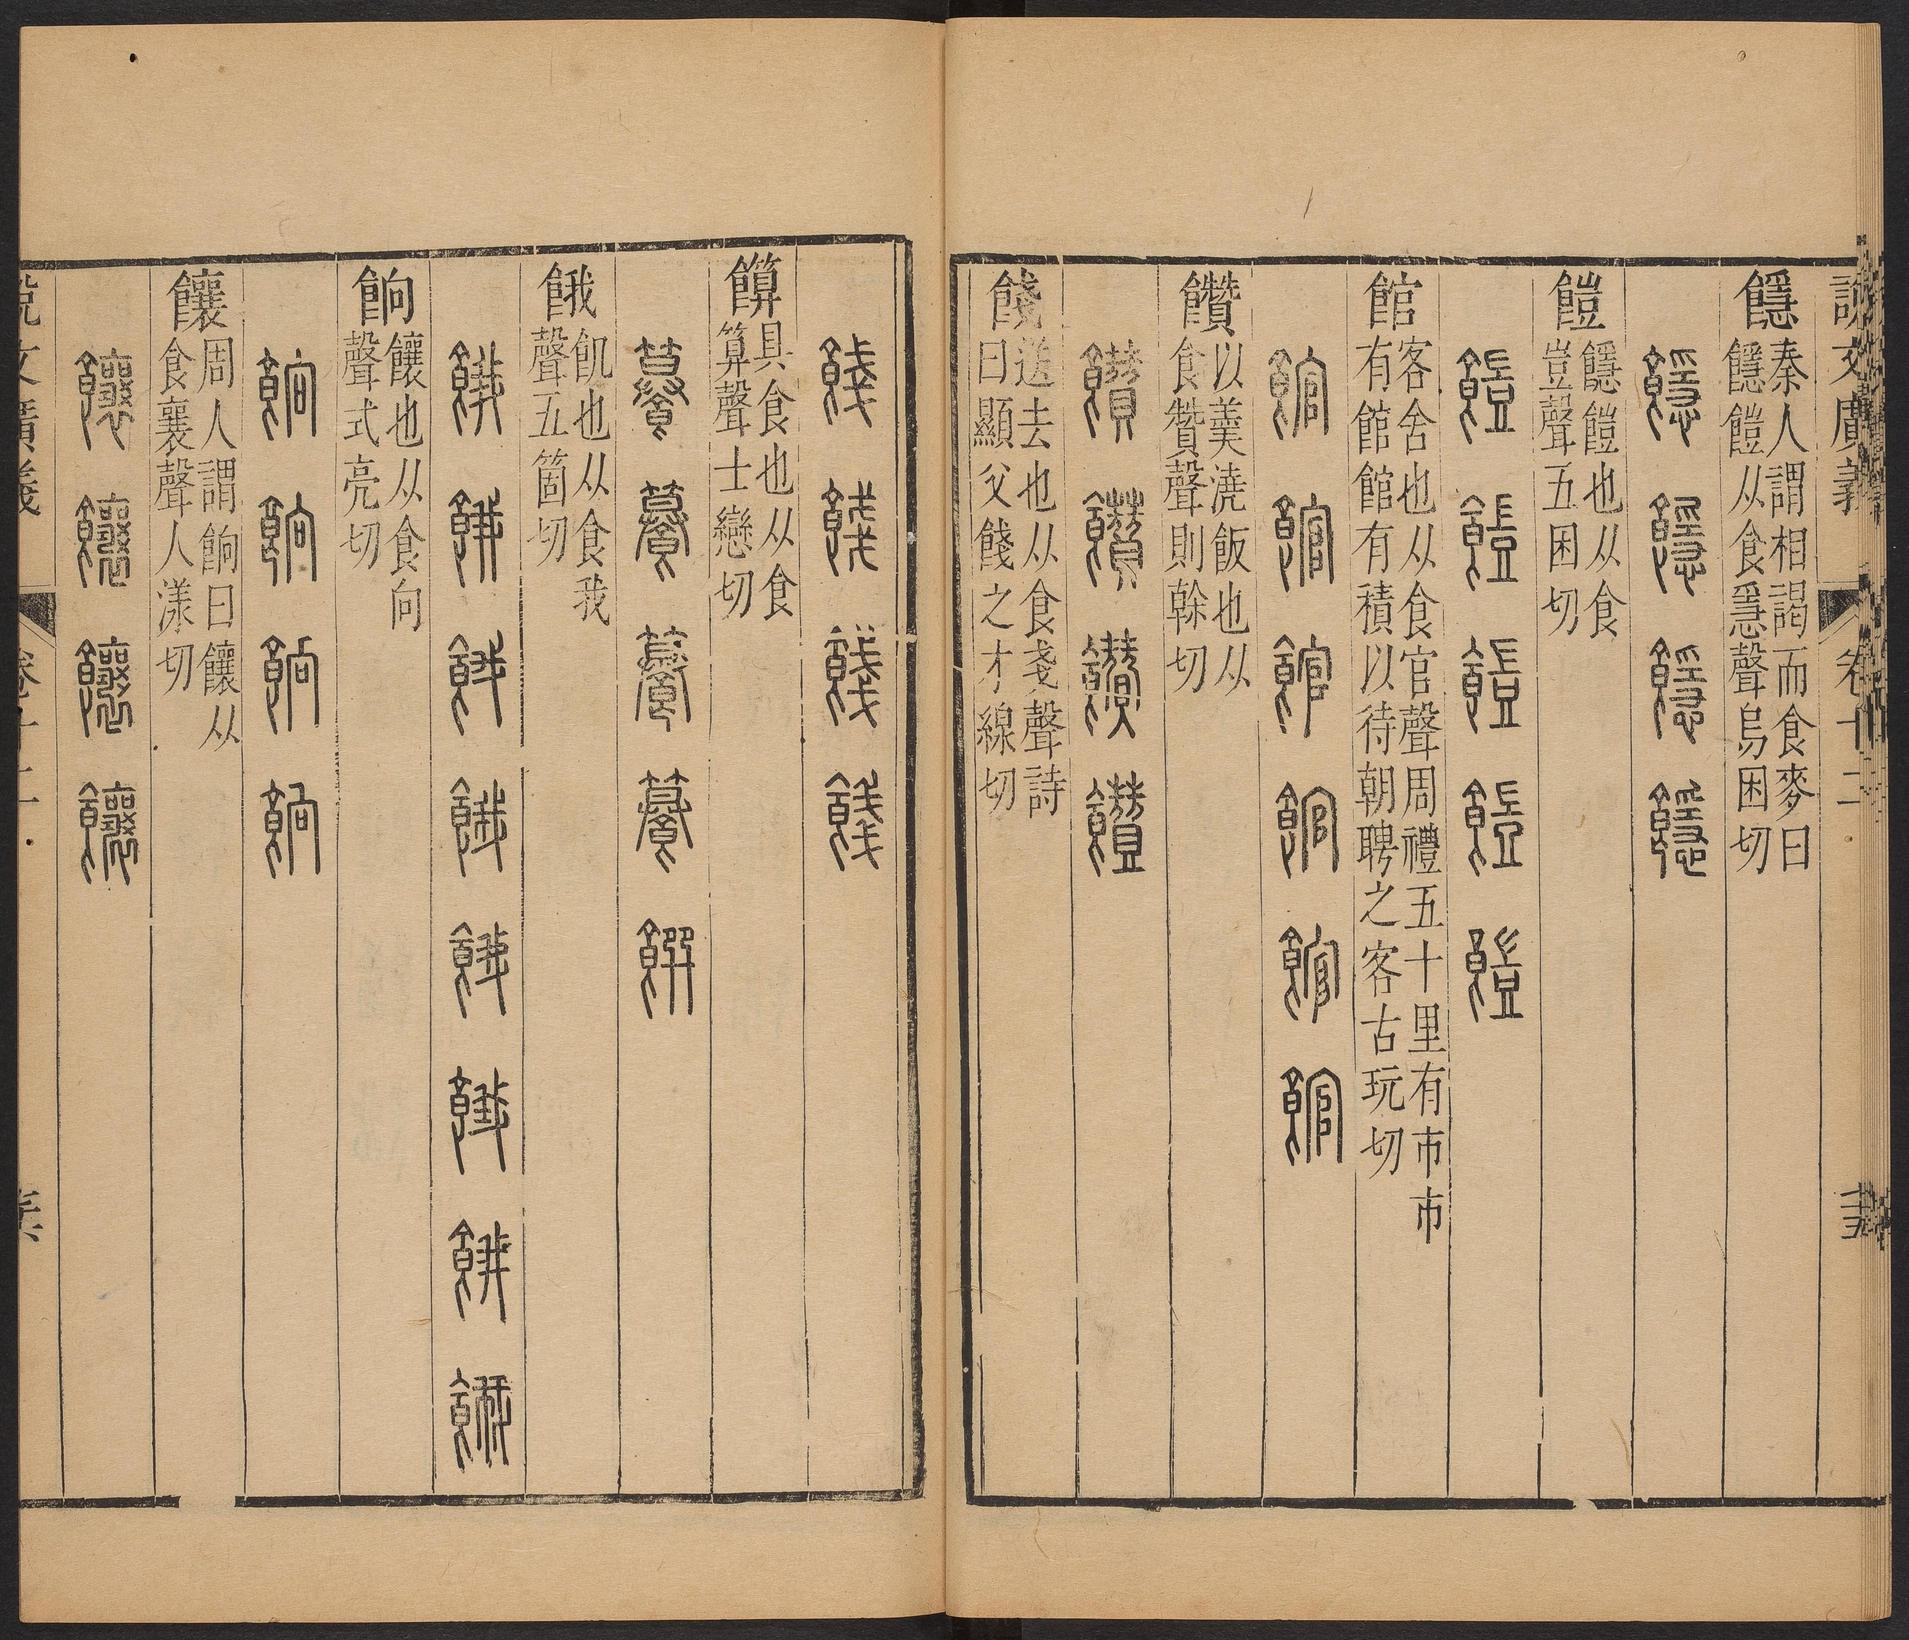 說文廣義 卷十二
䭡
秦人謂相謁而食麥曰
䭡䭓从食㥯聲烏困切
䭡䭡䭡䭡
䭓
䭡䭓也从食
豈聲五困切
䭓䭓䭓䭓䭓
館
客舍也从食官聲周禮五十里有市市
有館館有積以待朝聘之客古玩切
館館館館館館
饡
以羹澆飯也从
食贊聲則榦切
饡饡饡饡
餞
送去也从食戔聲詩
曰顯父餞之才線切
餞餞餞餞
䉵
具食也从食
算聲士戀切
餓
飢也从食我
聲五箇切
餓餓餓餓餓餓餓餓
餉
饟也从食向
聲式亮切
餉餉餉餉
饟
周人謂餉曰饟从
食襄聲人漾切
饟饟饟饟
說文廣義 卷十二